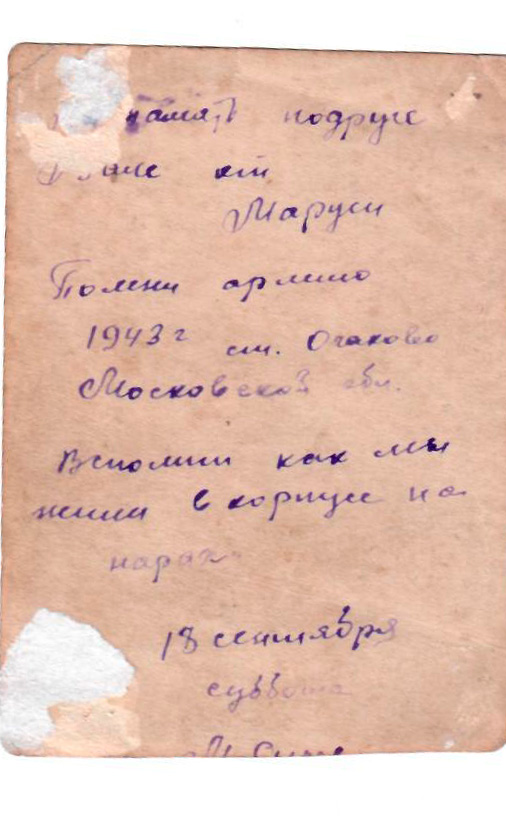 память подруге
от
Маруси
Помни армию
1943 г ст. Очаково
Московской обл.
Вспомни как мы
жили в корпусе на
нарах
18 сентября
суббота